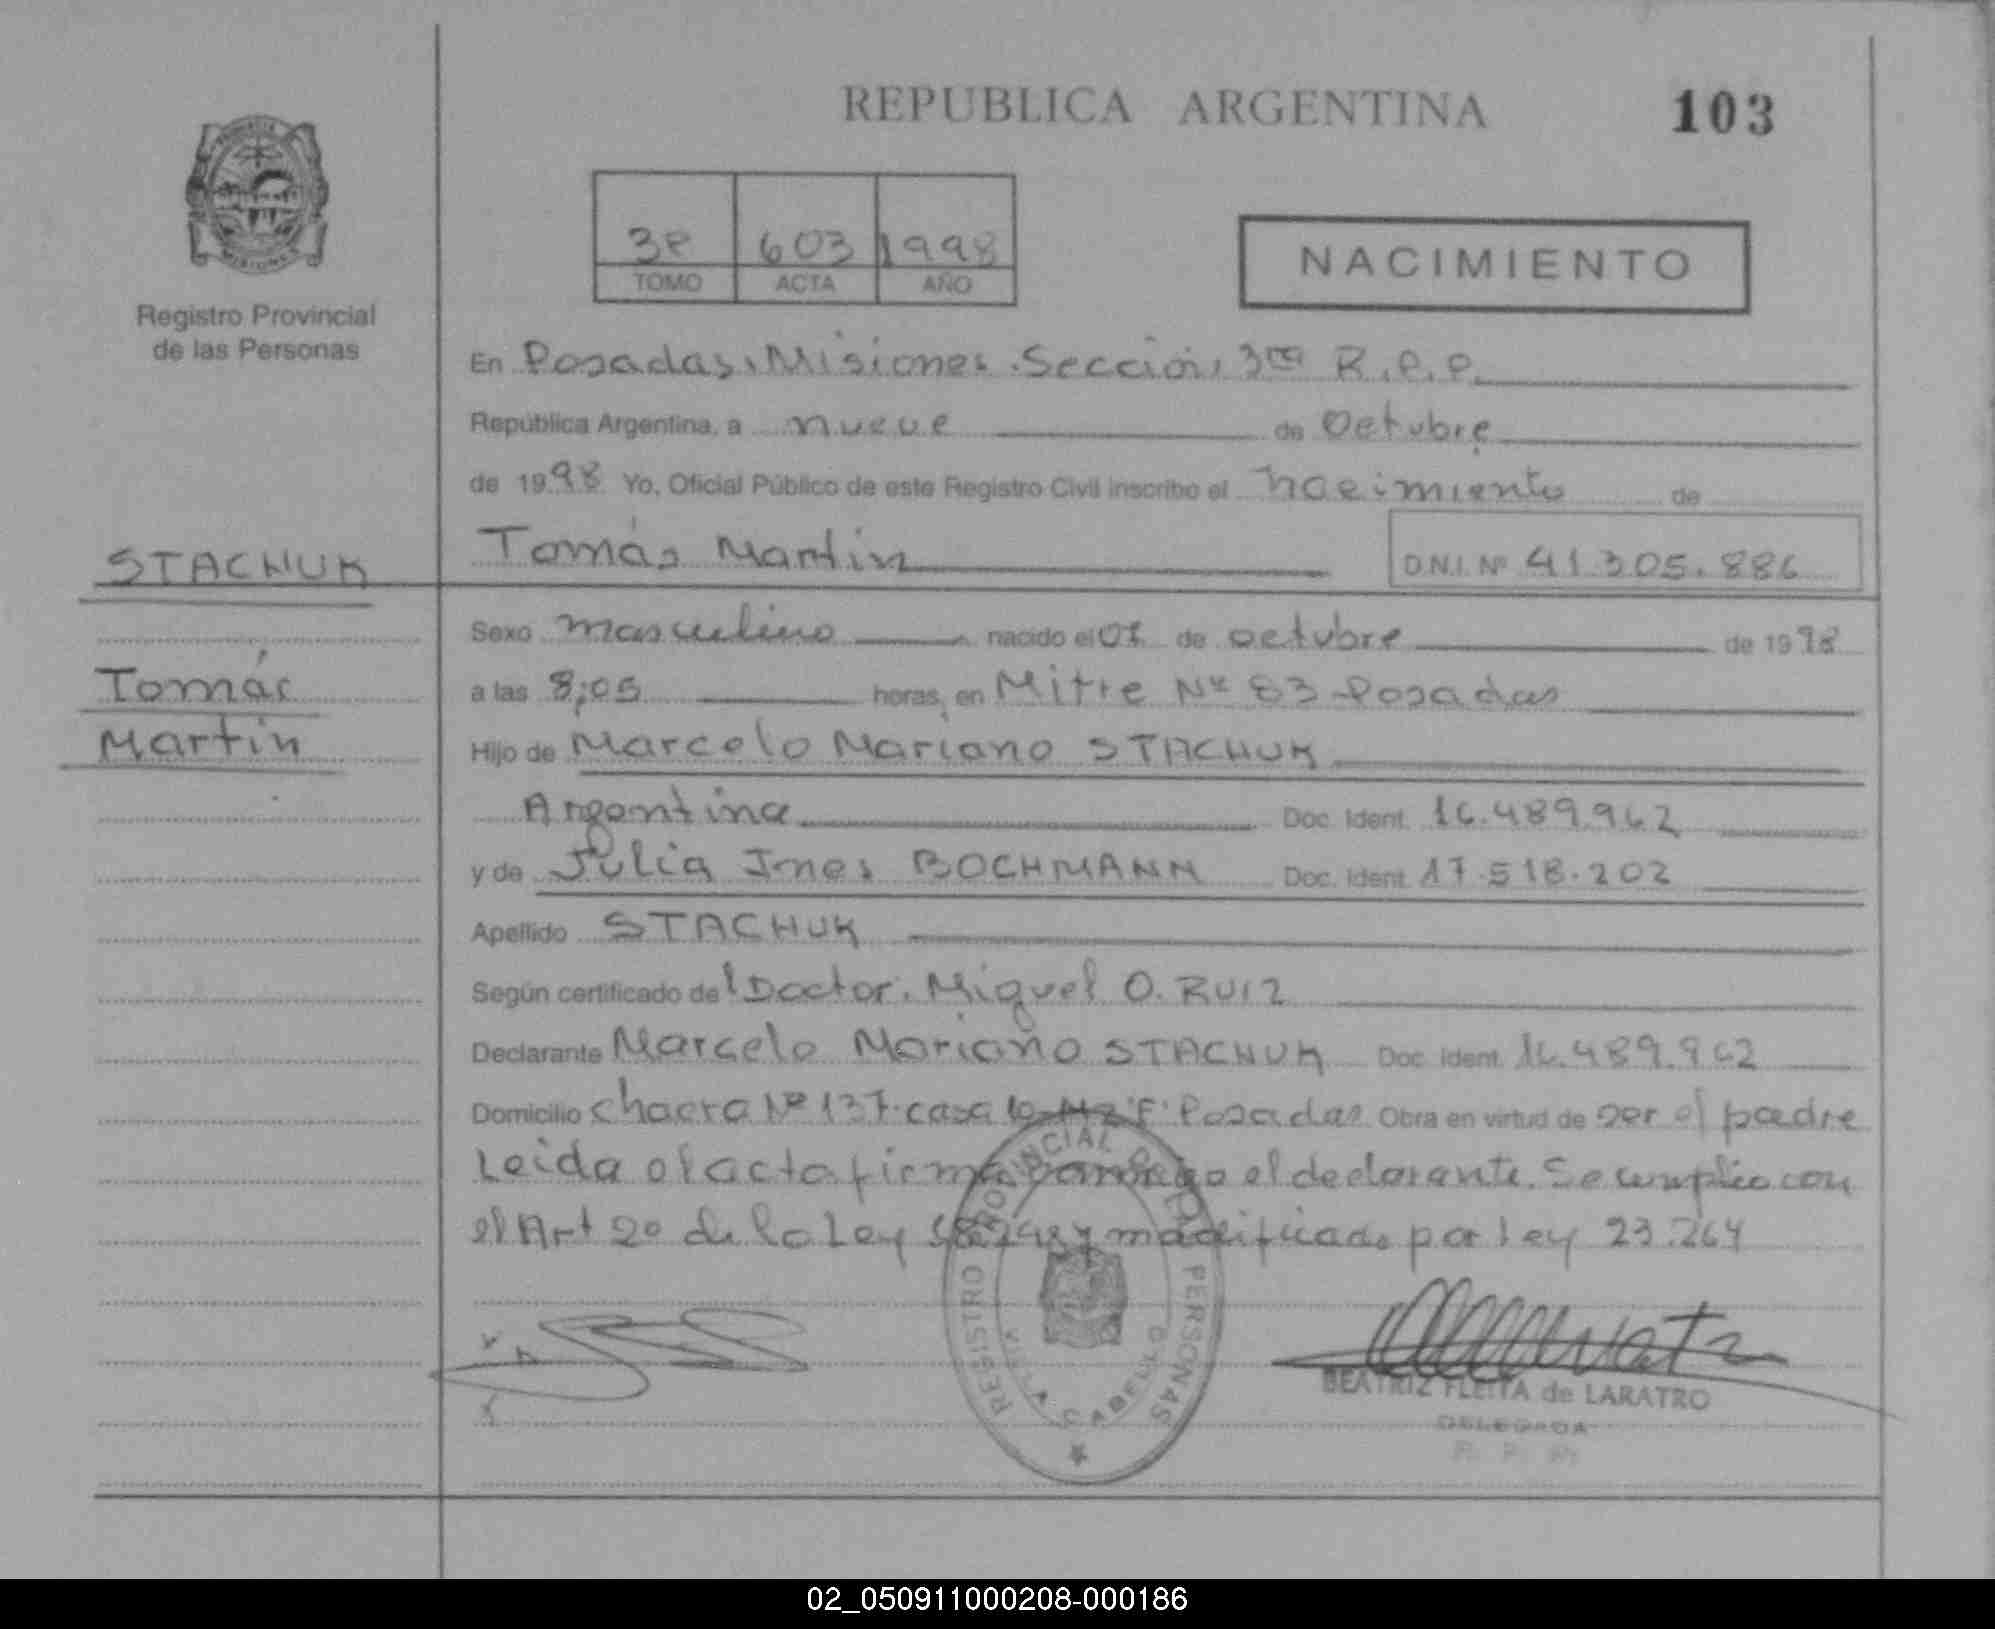 REPUBLICA ARGENTINA
103
PROVINCIA
MISIONES
Registro Provincial
de las Personas
603 1998
TOMO ACTA AÑO
NACIMIENTO
En Posadas, Misiones. Sección, 3ra R.P.P.
República Argentina, a nueve de Octubre
de 1998 Yo, Oficial Público de este Registro Civil inscribo el nacimiento de
Tomás Martín
D.N.I. Nº 41.305.886
STACHUK
Tomás
Martín
Sexo masculino nacido el de octubre de 1998
a las 8;05 horas, en Mitre Nº 83 Posadas
Hijo de Marcelo Mariano STACHUK
Argentina Doc. Ident. 16.489.962
y de Julia Ines BOCHMANN Doc. Ident. 17.518.202
Apellido STACHUK
Según certificado del Doctor. Miguel O. RUIZ
Declarante Marcelo Mariano STACHUK Doc. Ident. 16.489.962
Domicilio chacra Nº 137. casa Mz "F" Posadas Obra en virtud de ser el padre
Leida el acta firma conmigo el declarante. Se cumplio con
el Art 2º de la Ley 18.248 y modificado por ley 23.264
REGISTRO PROVINCIAL DE LAS PERSONAS
VILLA CABELLO
BEATRIZ FLEITA de LARATRO
DELEGADA
R. P. P.
02_050911000208-000186